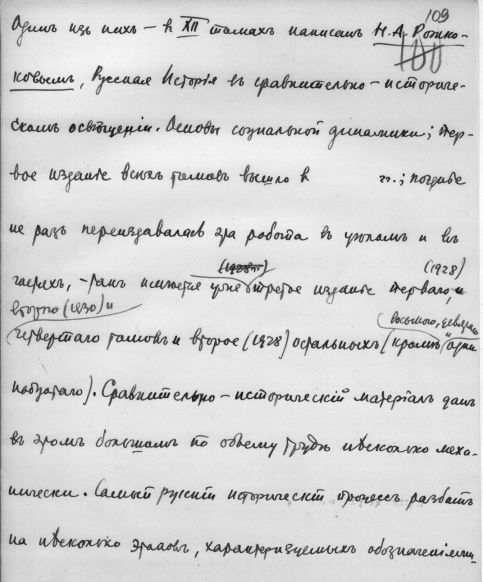 109
100
Одинъ изъ нихъ – в XII томахъ написанъ Н.А. Рожко-
ковымъ, Русская Исторія въ сравнительно-историче-
скомъ освѣщеніи. Основы соціальной динамики; пер-
вое изданіе всѣхъ томовъ вышло в гг.; позднѣе
не разъ переиздавалась эта работа въ цѣломъ и въ
(1928)
частяхъ, такъ имѣется уже третье изданіе перваго, и
второго (1930) и
восьмого, девятаго и
четвертаго томовъ и второе (1928) остальныхъ (кромѣ один
надцатаго). Сравнительно-историческій матеріалъ данъ
въ этомъ большомъ по объему трудѣ нѣсколько меха-
нически. Самый русскій историческій процессъ разбитъ
на нѣсколько этаповъ, характеризуемыхъ обозначеніями